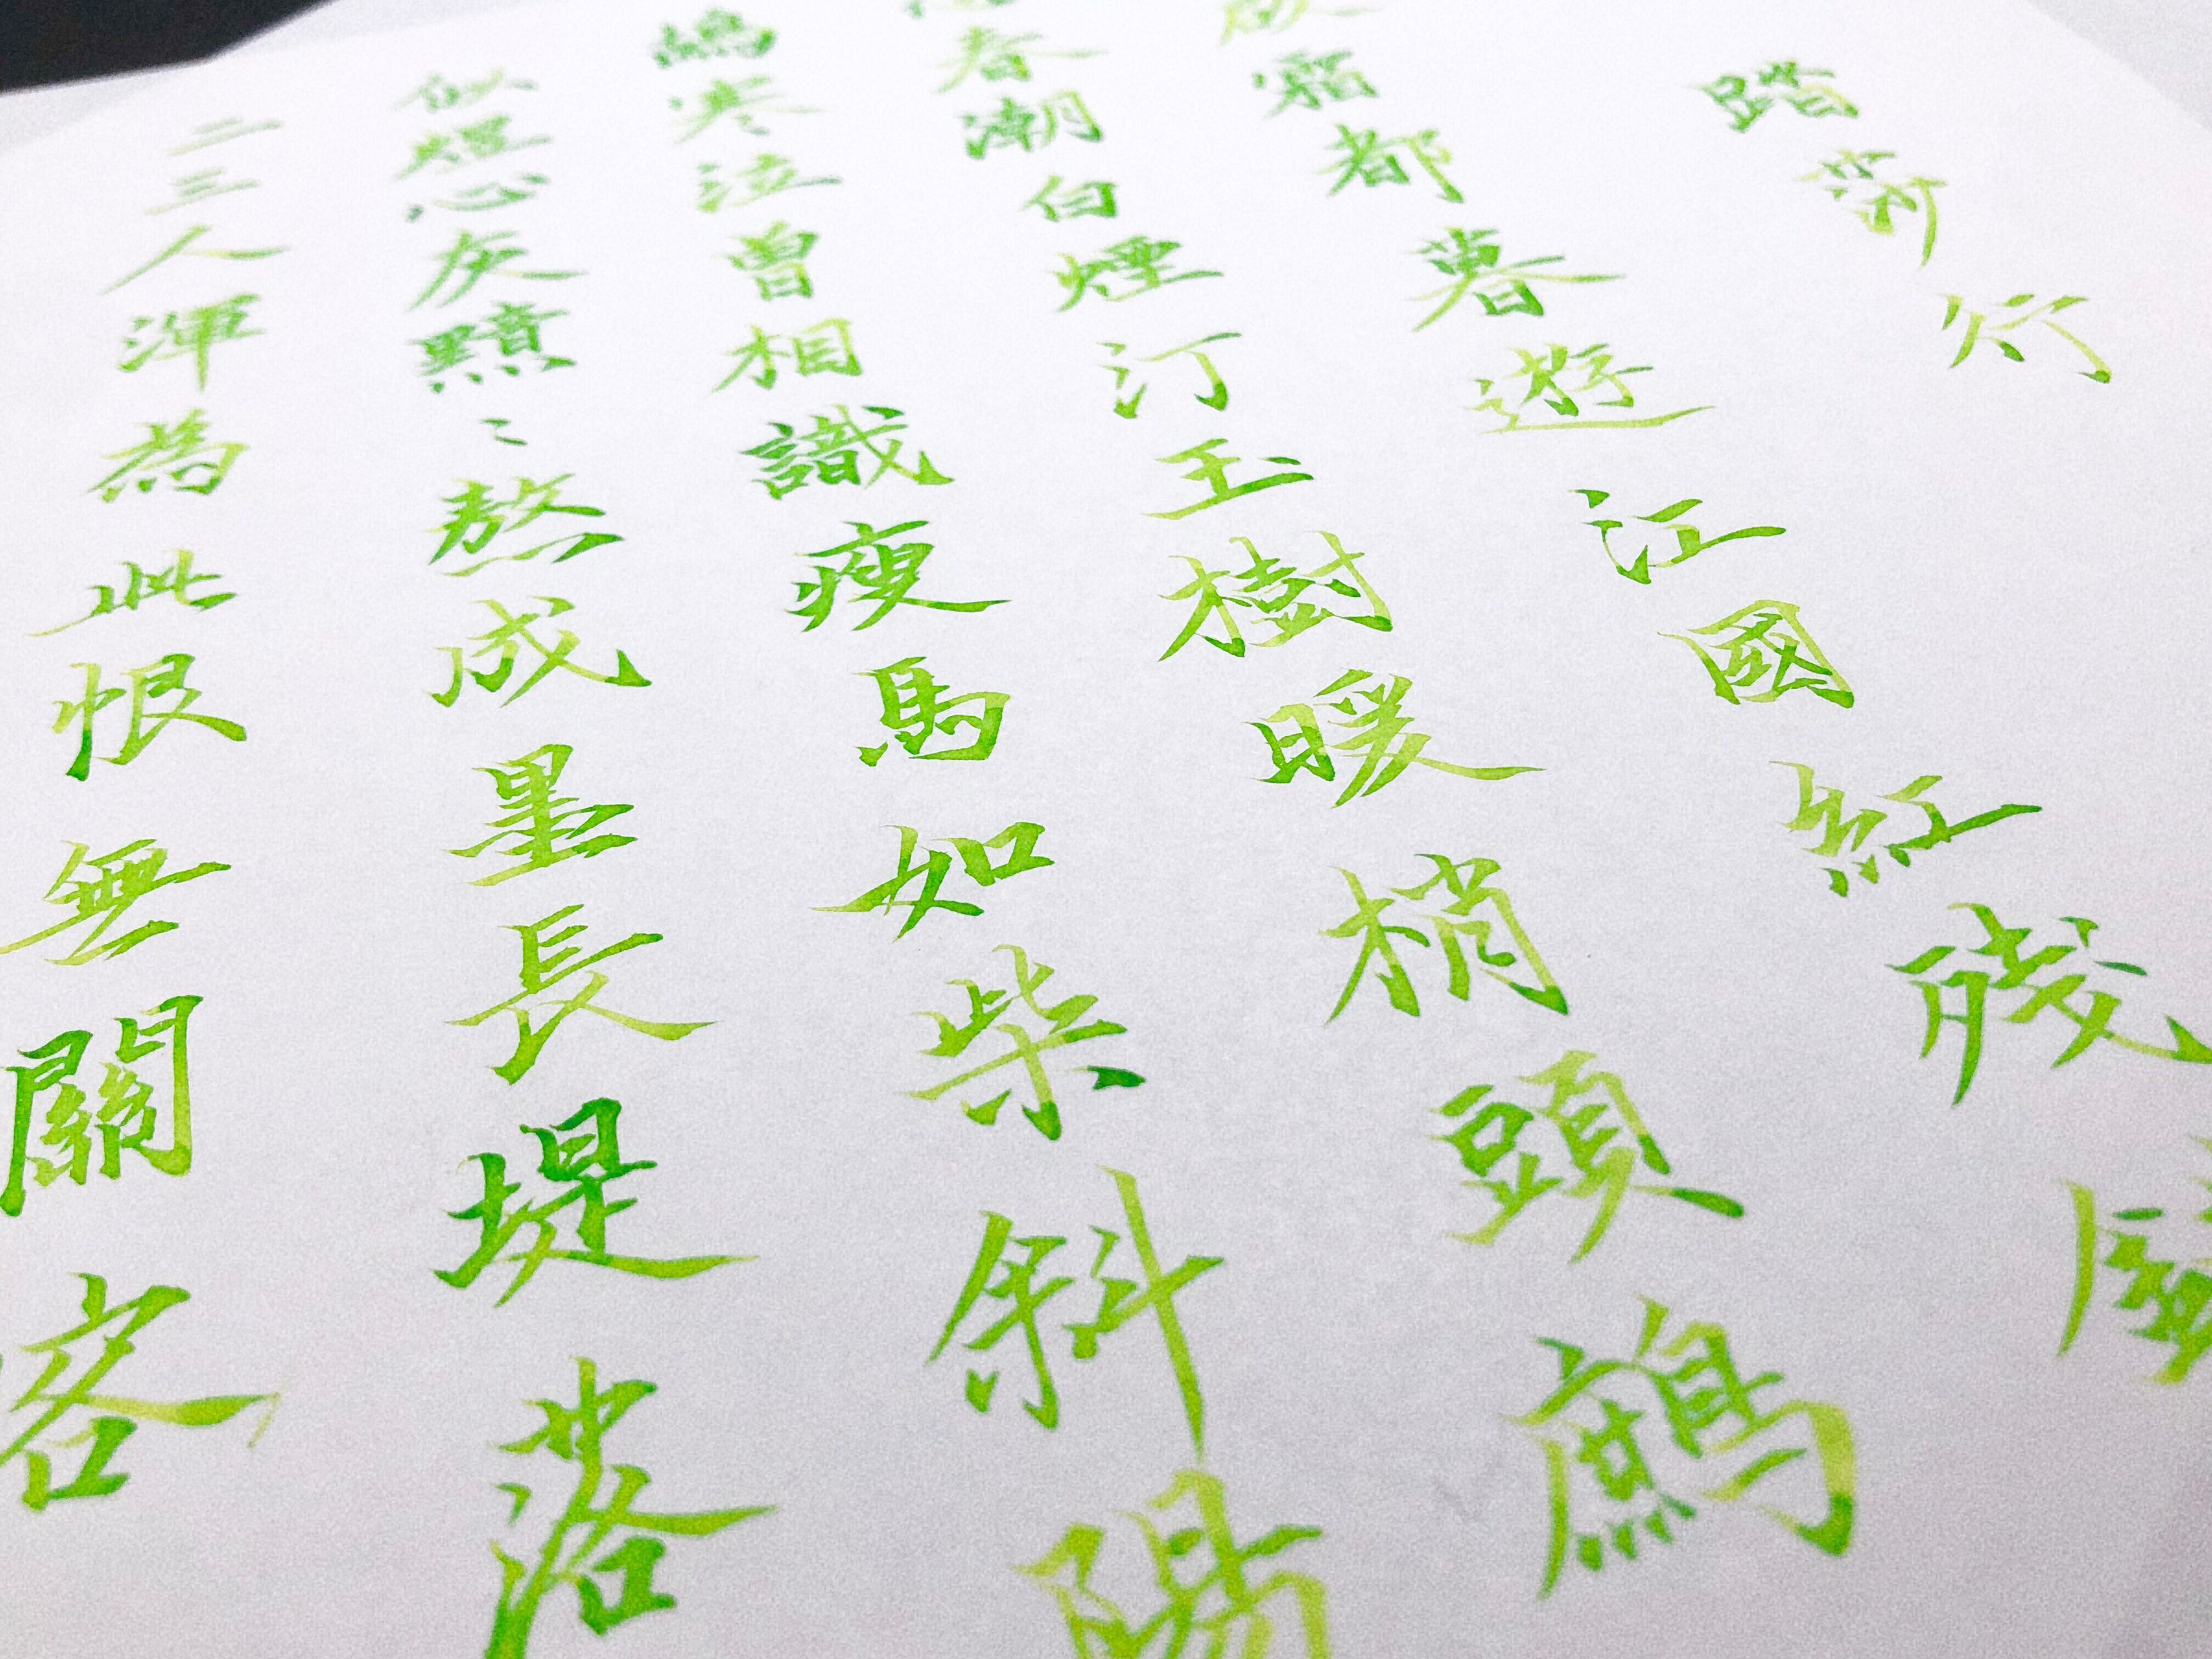 踏莎行
霜都暮遊江國紅殘
春潮白煙汀玉樹暖梢頭鷓
鴣寒泣曾相識瘦馬如柴斜陽
似煙心灰〻熬成墨長堤落
二三人渾為此恨無關客